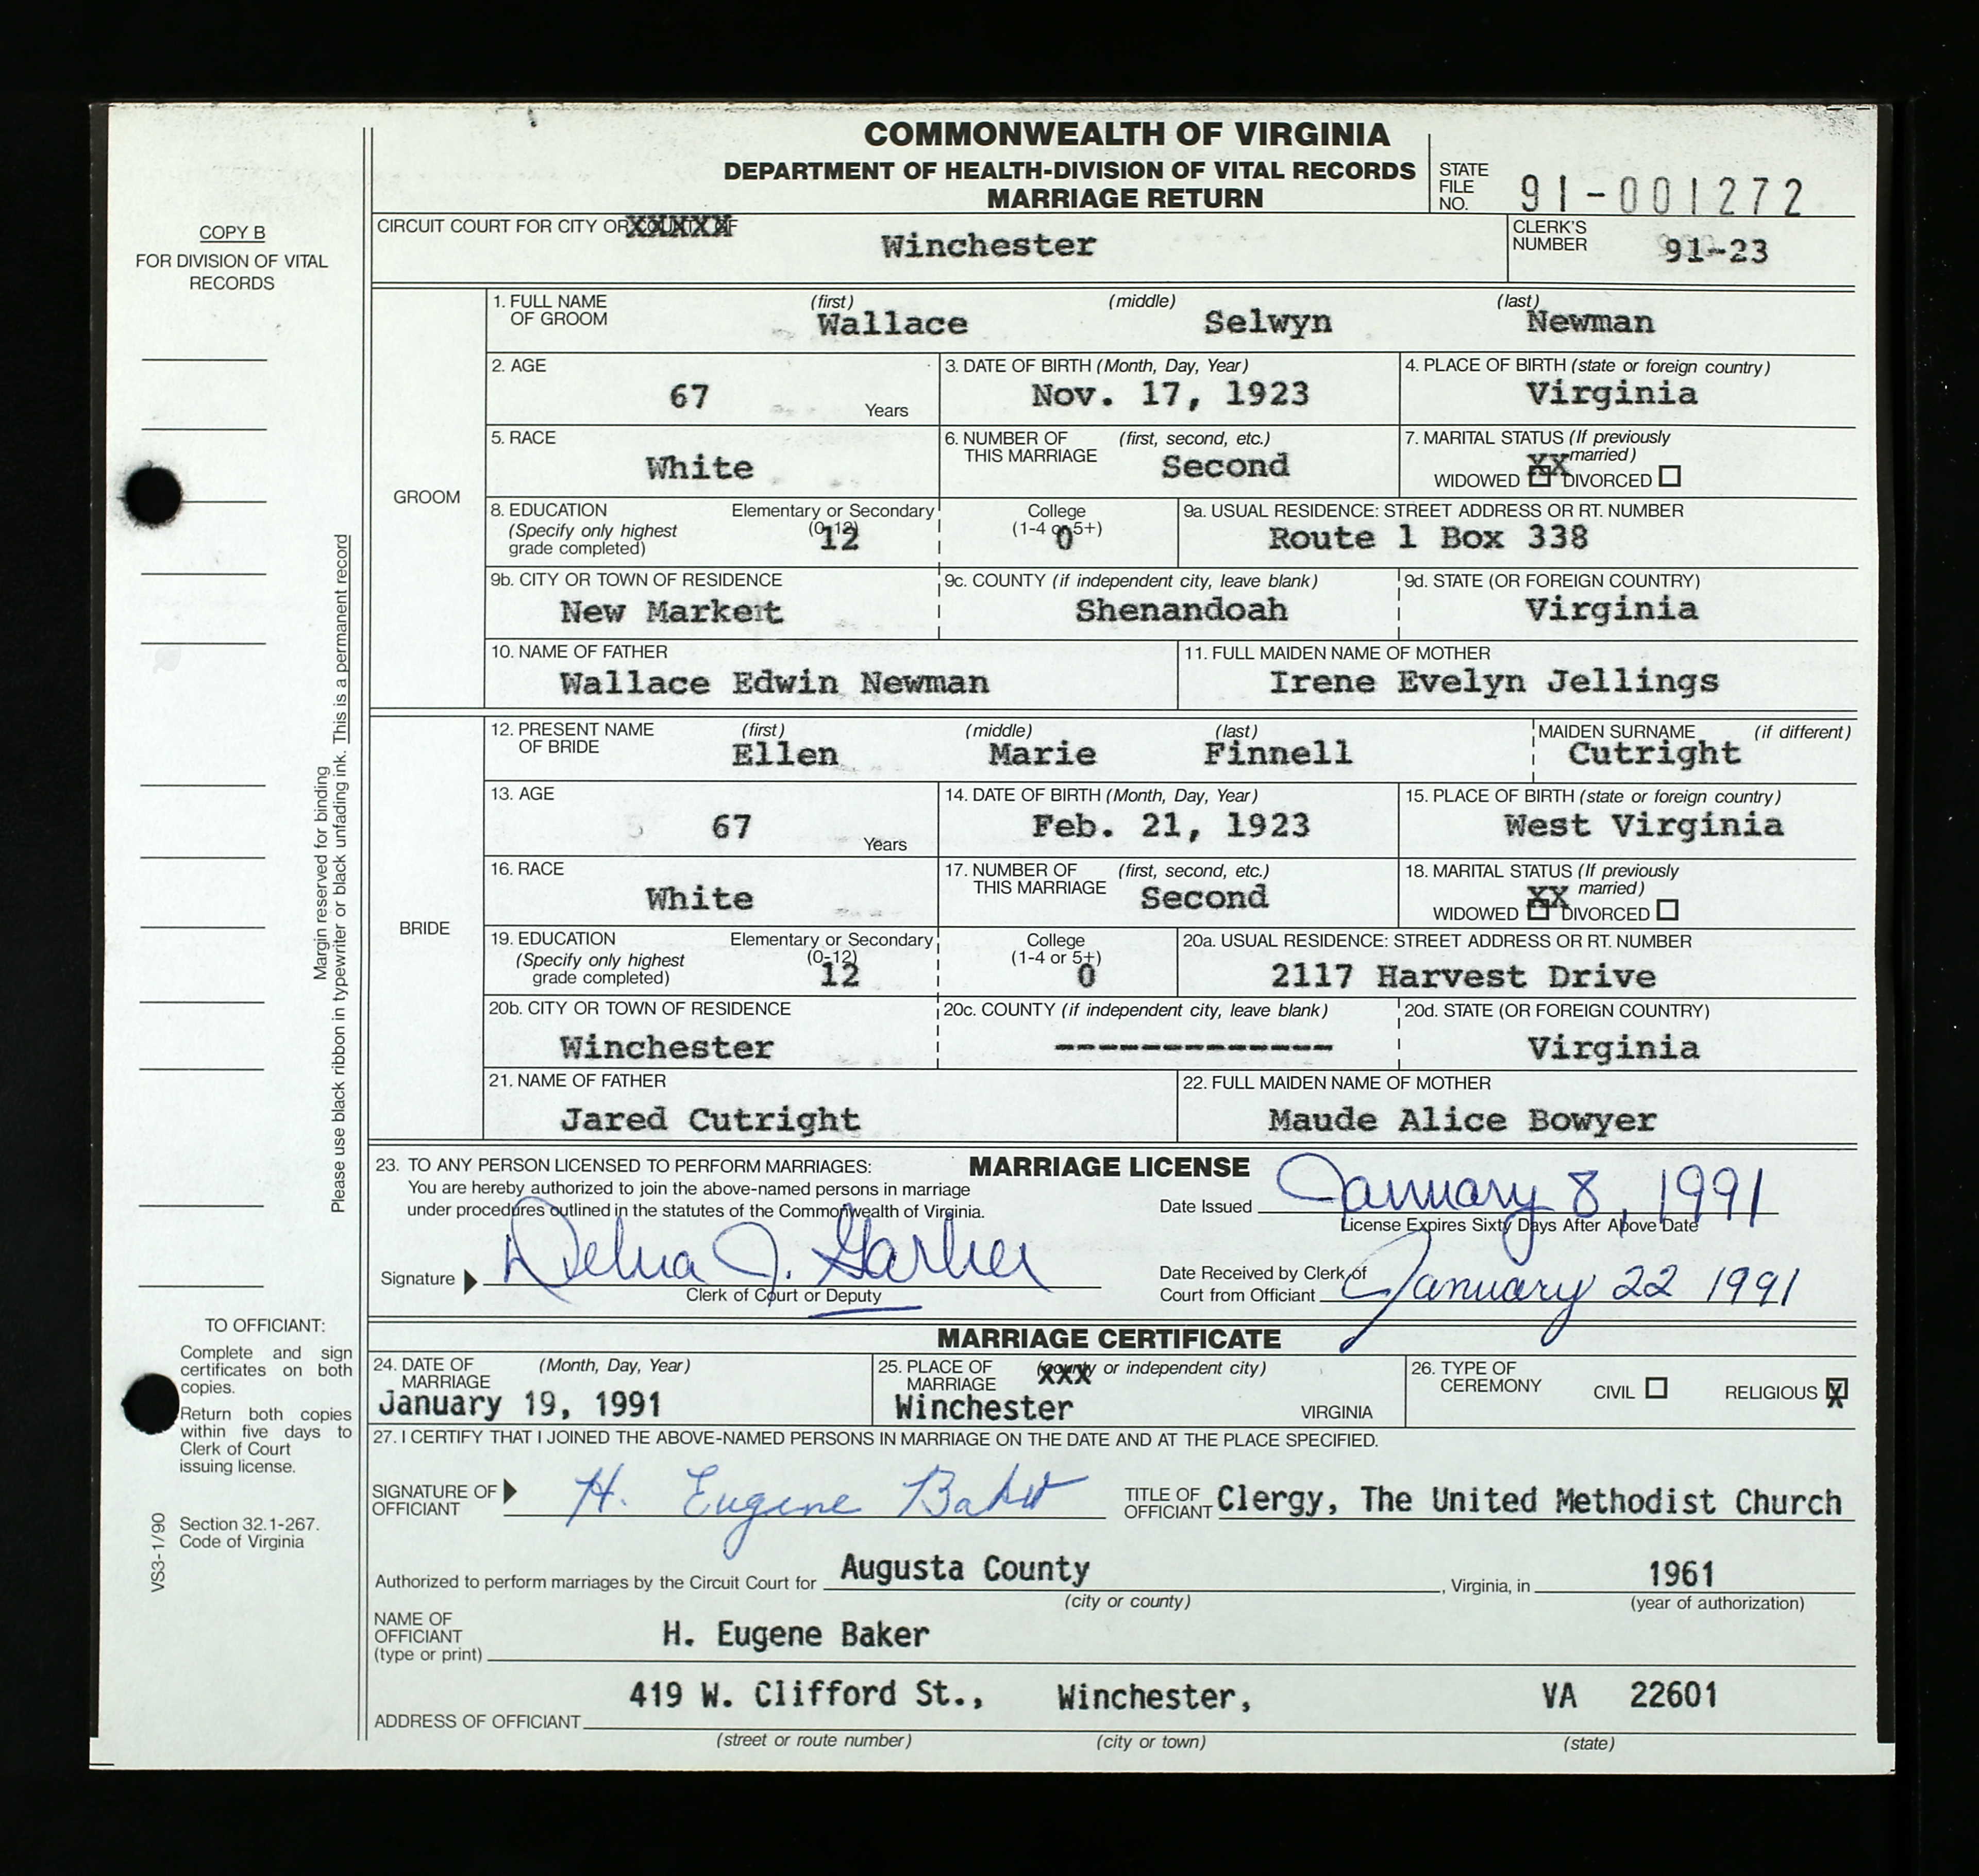 COMMONWEALTH OF VIRGINIA
DEPARTMENT OF HEALTH-DIVISION OF VITAL RECORDS
MARRIAGE RETURN
STATE FILE NO. 91-001272
COPY B
FOR DIVISION OF VITAL
RECORDS
CIRCUIT COURT FOR CITY OR COUNTY OF Winchester
CLERK'S NUMBER 91-23
Margin reserved for binding
Please use black ribbon in typewriter or black unfading ink. This is a permanent record
GROOM
1. FULL NAME OF GROOM (first) Wallace (middle) Selwyn (last) Newman
2. AGE 67 Years
3. DATE OF BIRTH (Month, Day, Year) Nov. 17, 1923
4. PLACE OF BIRTH (state or foreign country) Virginia
5. RACE White
6. NUMBER OF THIS MARRIAGE (first, second, etc.) Second
7. MARITAL STATUS (If previously married) WIDOWED XX DIVORCED
8. EDUCATION (Specify only highest grade completed) Elementary or Secondary (0-12) 12 College (1-4 or 5+) 0
9a. USUAL RESIDENCE: STREET ADDRESS OR RT. NUMBER Route 1 Box 338
9b. CITY OR TOWN OF RESIDENCE New Market
9c. COUNTY (if independent city, leave blank) Shenandoah
9d. STATE (OR FOREIGN COUNTRY) Virginia
10. NAME OF FATHER Wallace Edwin Newman
11. FULL MAIDEN NAME OF MOTHER Irene Evelyn Jellings
BRIDE
12. PRESENT NAME OF BRIDE (first) Ellen (middle) Marie (last) Finnell MAIDEN SURNAME (if different) Cutright
13. AGE 67 Years
14. DATE OF BIRTH (Month, Day, Year) Feb. 21, 1923
15. PLACE OF BIRTH (state or foreign country) West Virginia
16. RACE White
17. NUMBER OF THIS MARRIAGE (first, second, etc.) Second
18. MARITAL STATUS (If previously married) WIDOWED XX DIVORCED
19. EDUCATION (Specify only highest grade completed) Elementary or Secondary (0-12) 12 College (1-4 or 5+) 0
20a. USUAL RESIDENCE: STREET ADDRESS OR RT. NUMBER 2117 Harvest Drive
20b. CITY OR TOWN OF RESIDENCE Winchester
20c. COUNTY (if independent city, leave blank) -------------
20d. STATE (OR FOREIGN COUNTRY) Virginia
21. NAME OF FATHER Jared Cutright
22. FULL MAIDEN NAME OF MOTHER Maude Alice Bowyer
23. TO ANY PERSON LICENSED TO PERFORM MARRIAGES: MARRIAGE LICENSE
You are hereby authorized to join the above-named persons in marriage
under procedures outlined in the statutes of the Commonwealth of Virginia.
Date Issued January 8, 1991
License Expires Sixty Days After Above Date
Signature Debra J. Garber
Clerk of Court or Deputy
Date Received by Clerk of Court from Officiant January 22 1991
MARRIAGE CERTIFICATE
24. DATE OF MARRIAGE (Month, Day, Year) January 19, 1991
25. PLACE OF MARRIAGE (county or independent city) Winchester VIRGINIA
26. TYPE OF CEREMONY CIVIL RELIGIOUS X
27. I CERTIFY THAT I JOINED THE ABOVE-NAMED PERSONS IN MARRIAGE ON THE DATE AND AT THE PLACE SPECIFIED.
SIGNATURE OF OFFICIANT H. Eugene Baker
TITLE OF OFFICIANT Clergy, The United Methodist Church
Authorized to perform marriages by the Circuit Court for Augusta County, Virginia, in 1961
(city or county) (year of authorization)
NAME OF OFFICIANT (type or print) H. Eugene Baker
ADDRESS OF OFFICIANT 419 W. Clifford St., Winchester, VA 22601
(street or route number) (city or town) (state)
TO OFFICIANT:
Complete and sign
certificates on both
copies.
Return both copies
within five days to
Clerk of Court
issuing license.
Section 32.1-267.
Code of Virginia
VS3-1/90